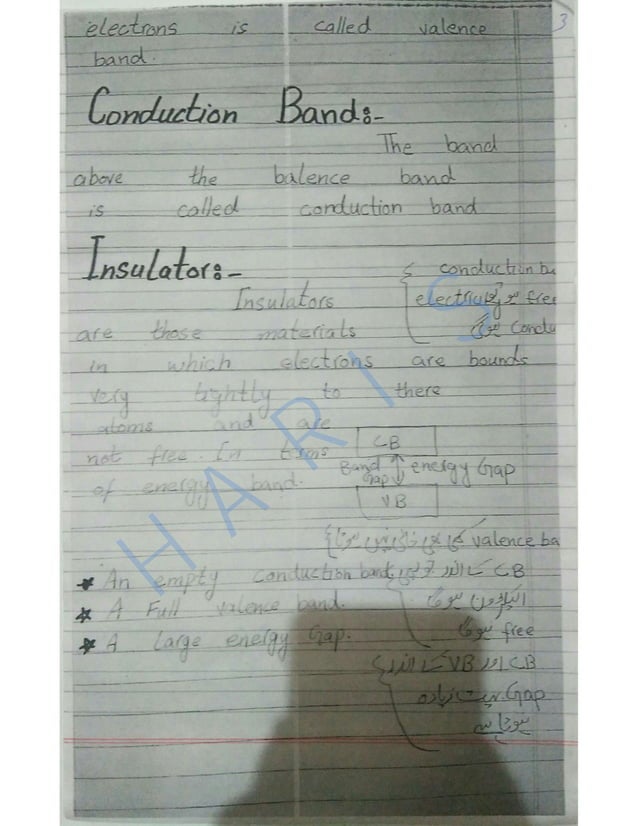 3
electrons is called valence
band.
Conduction Band:-
The band
above the balence band
is called conduction band
Insulator:-
{ conduction ba
Insulators
free
are those materials
condu
in which electrons are bounds
very tightly to there
atoms and are
CB
not free. In tirms
Band Gap energy Gap
of energy band.
VB
valence ba
* An empty conduction band.
CB کے اندر
* A Full valence band.
الیکٹرون ہوگا
* A large energy Gap.
free ہوگا
CB اور VB کے اندر
Gap بہت زیادہ
ہوتا ہے
HARIS